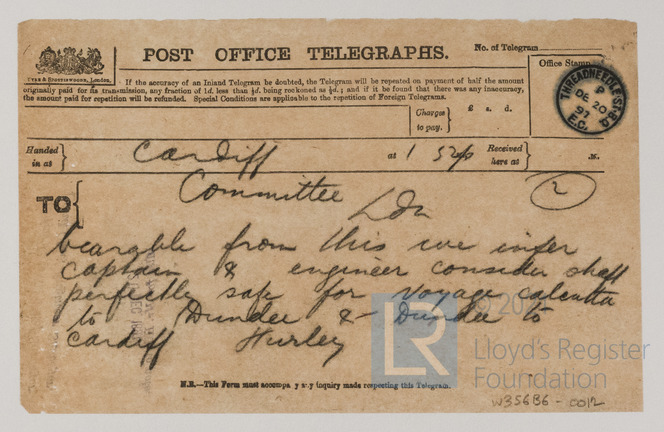 POST OFFICE TELEGRAPHS.
No. of Telegram
Office Stamp.
EYRE & SPOTTISWOODE, London.
If the accuracy of an Inland Telegram be doubted, the Telegram will be repeated on payment of half the amount
originally paid for its transmission, any fraction of 1d. less than ½d. being reckoned as ½d.; and if it be found that there was any inaccuracy,
the amount paid for repetition will be refunded. Special Conditions are applicable to the repetition of Foreign Telegrams.
THREADNEEDLE ST. B.O.
P
DE 20
97
E.C.
Charges to pay. £ s. d.
Handed in at Cardiff at 1 52p Received here at M.
TO Committee 2
Ldn
bearable from this we infer
captain & engineer consider shaft
perfectly safe for voyage calcutta
to Dundee & Dundee to
cardiff Hurley
N.B.—This Form must accompany any inquiry made respecting this Telegram.
LR
Lloyd's Register
Foundation
W356B6 - 0012